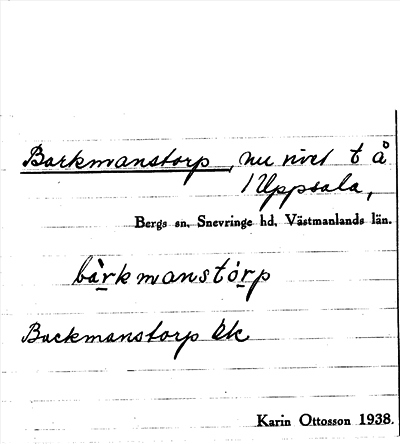 Barkmanstorp, nu rivet t å
1 Uppsala,
Bergs sn, Snevringe hd, Västmanlands län.
bàrkmanstórp
Backmanstorp Ek
Karin Ottosson 1938.